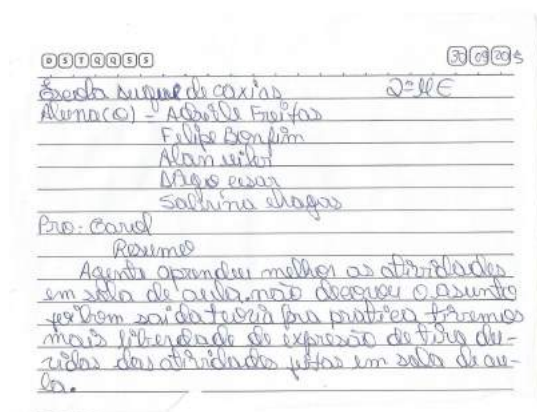 D S T Q Q S S 30 09 2015
Escola duque de caxias 2º ME
Aluna(o) - Adeile Freitas
Felipe Bonfim
Alan
cesar
Sabrina chagas
Pro: Carol
Resumo
Agente aprendeu melhor as atividades
em sala de aula, não o asunto
foi bom sai da teoria pra pratica tivemos
mais liberdade de expressão de tira du-
vidas das atividades feitas em sala de au-
la.